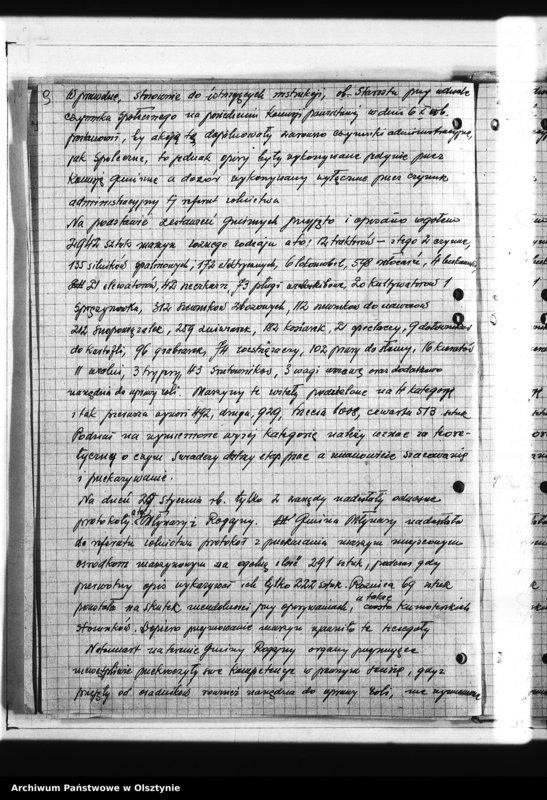 Wprawdzie, stosownie do istniejących instrukcji, ob. Starosta przy udziale
czynnika społecznego na posiedzeniu Komisji powiatowej w dniu 6 X ub.
postanowił, by akcją tą dopilnowały zarówno czynniki administracyjne,
jak społeczne, to jednak opisy były wykonywane jedynie przez
Komisję gminne a dozór wykonywany wyłącznie przez czynnik
administracyjny tj referat rolnictwa
Na podstawie zestawień gminnych przyjęto i opisano ogółem
2942 sztuk maszyn rożnego rodzaju a to: 12 traktorów – z tego 2 czynne,
135 silników spalinowych, 172 elektrycznych, 6 lokomobil, 598 młocarń, 4
21 elewatorów, 42 sieczkarń, 73 pługi, 20 kultywatorów 1
sprężynówka, 312 siewników zbożowych, 112 siewników do nawozów
212 snopowiązałek, 259 żniwiarek, 182 kosiarek, 21 9
do kartofli, 96 grabiarek, 74 roztrząsaczy, 102 prasy do słomy, 116 kieratów
11 wialni, 3 tryjery, 43 śrutowników, 3 wagi oraz dodatkowo
narzędzia do uprawy roli. Maszyny te zostały podzielone na 4 kategorie
i tak pierwsza wynosi 492, druga, 929, trzecia 1008, czwarta 513 sztuk
Podział na wymienione wyżej kategorie należy uznać za teore-
tyczny o czym świadczy dalszy etap prac a mianowicie szacowanie
i przekazywanie.
Na dzień 29 stycznia rb. tylko 2 zarządy nadesłały odnośne
protokoły a to: Młynary i Rogajny. Gmina Młynary nadesłała
do referatu rolnictwa protokół z przekazania maszyn miejscowym
ośrodkom maszynowym na ogólną ilość 291 sztuk, podczas gdy
pierwotny opis wykazywał ich tylko 222 sztuk. Różnica 69 sztuk
powstała na skutek nieudolności przy opisywaniach, a także ciasno kumoterskich
stosunków. Dopiero przejmowanie maszyn ujawniło te szczegóły
Natomiast na terenie Gminy Rogajny organy przejmujące
niewątpliwie przekroczyły swe kompetencje w prawnym sensie, gdyż
przejęły od osadników również narzędzia do uprawy roli, nie wymienione
Archiwum Państwowe w Olsztynie